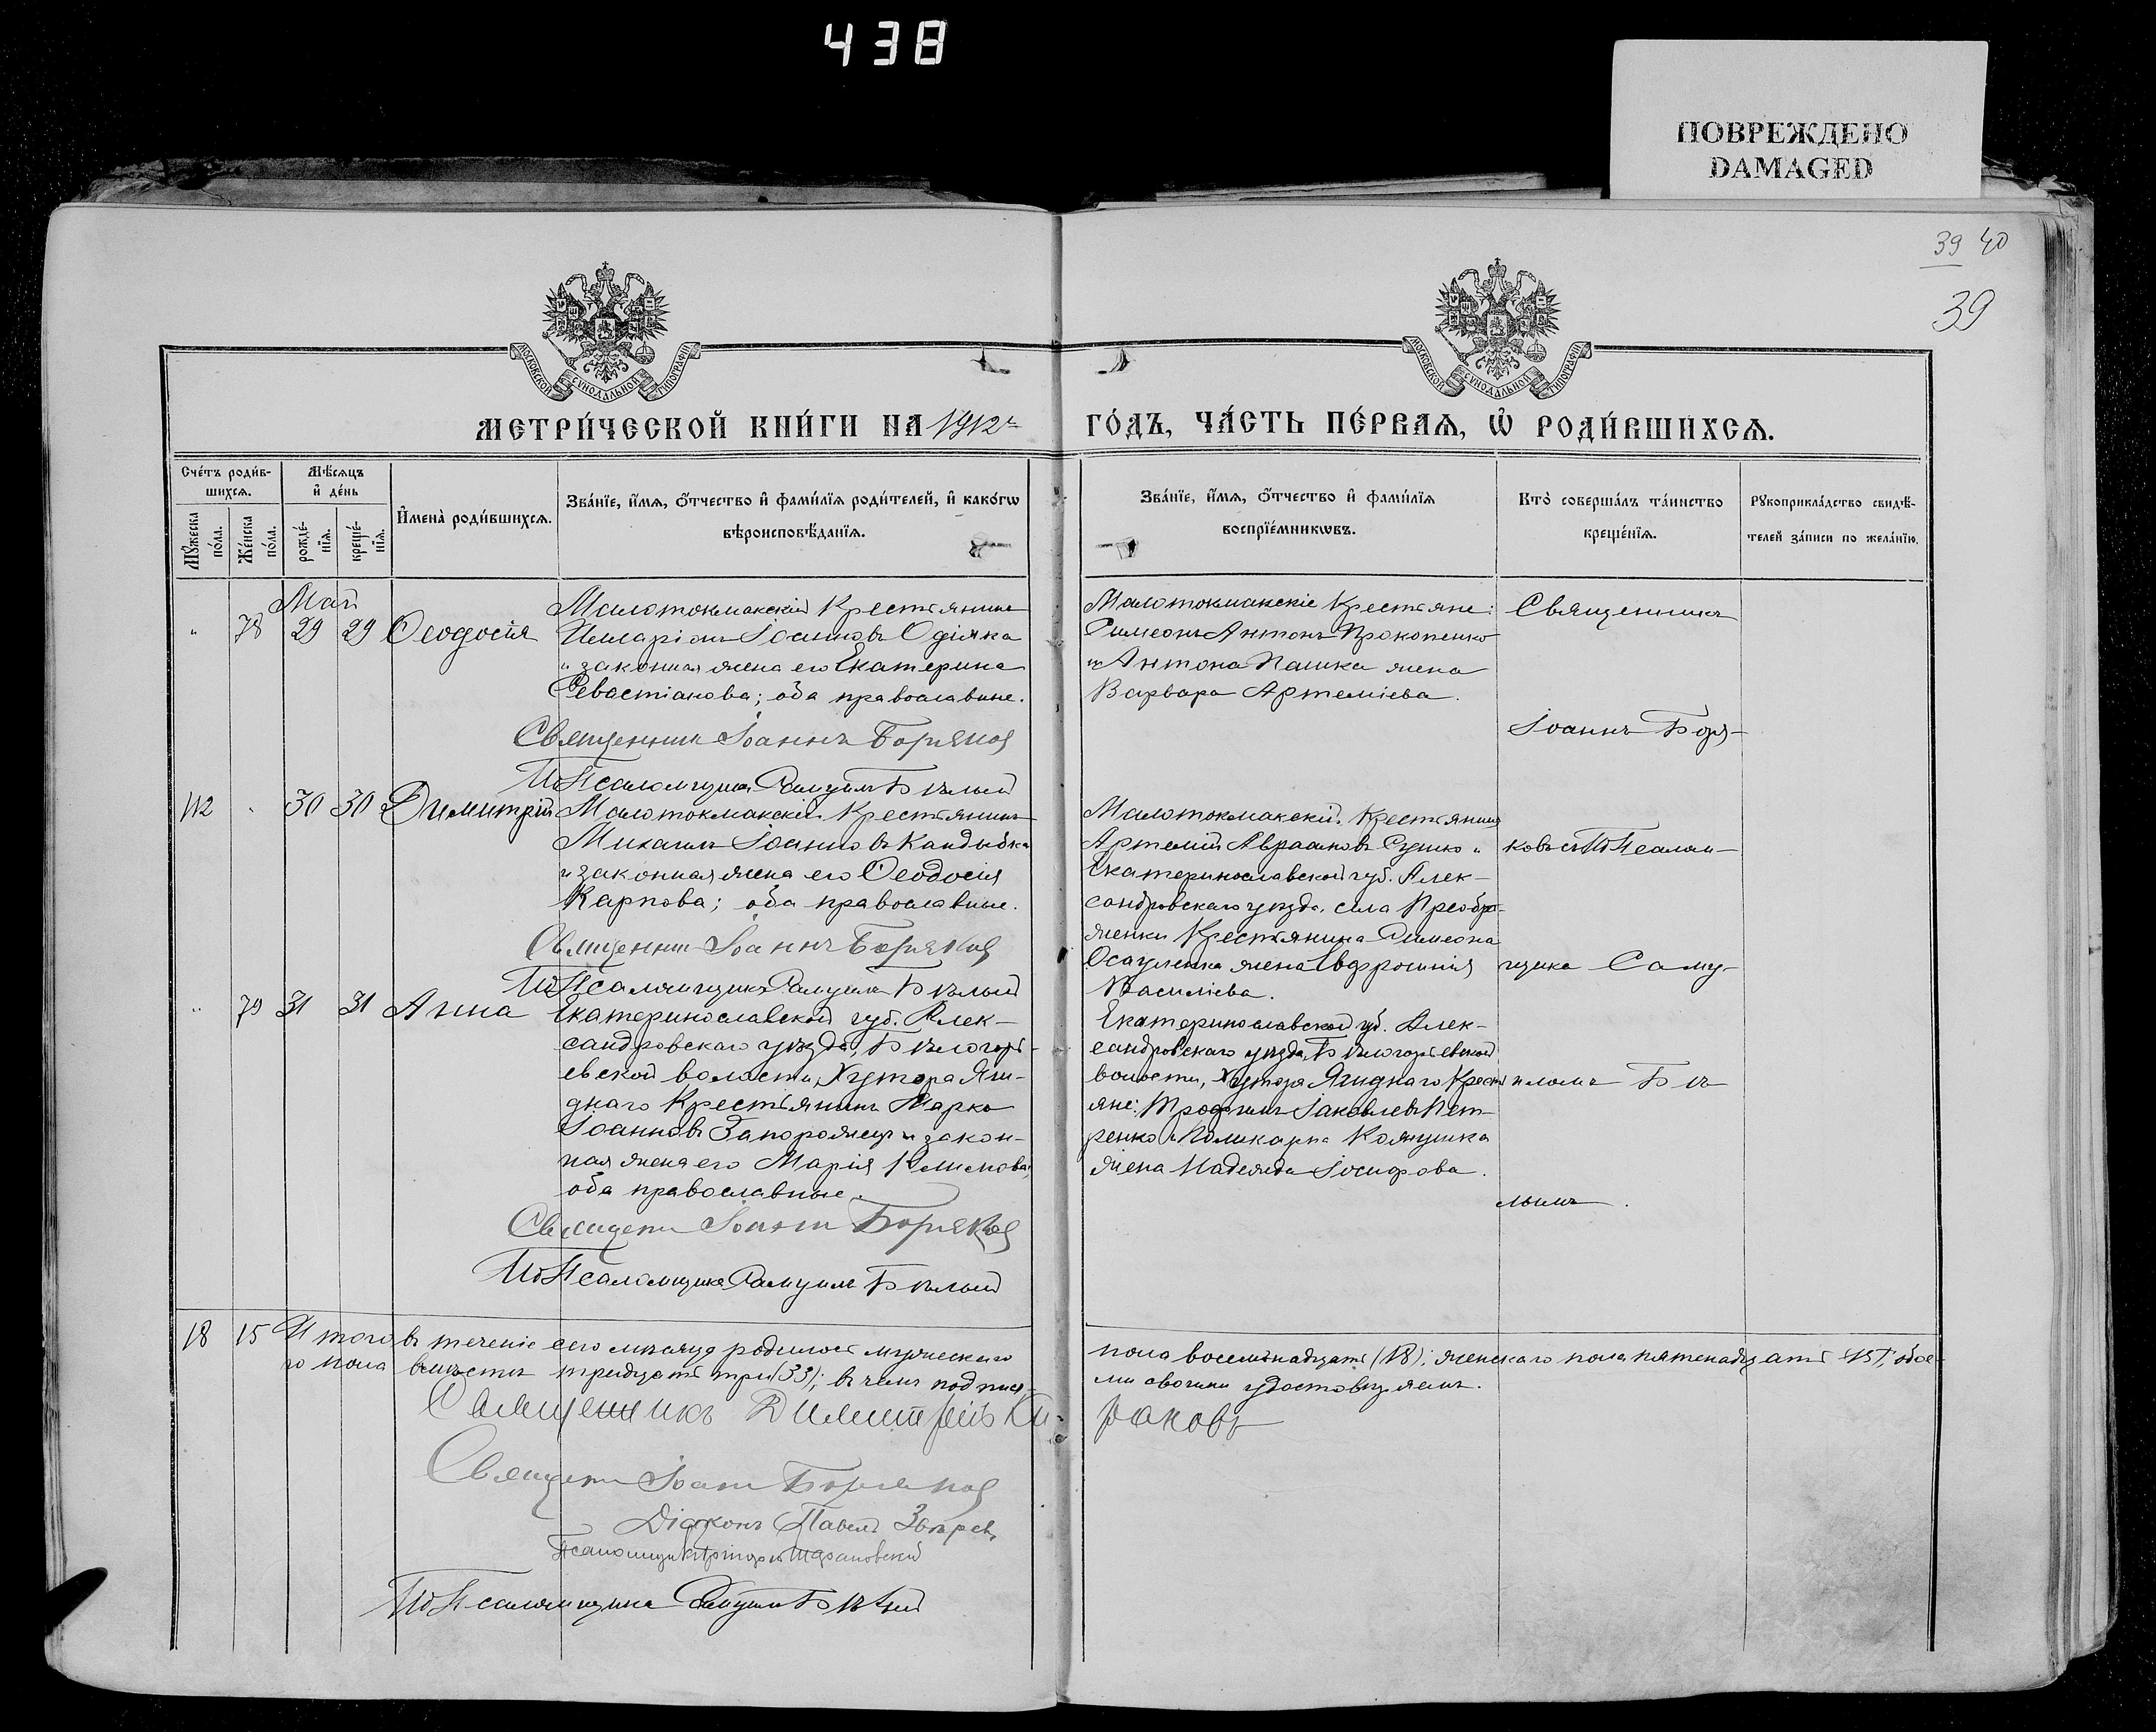 438
ПОВРЕЖДЕНО
DAMAGED
39 40
39
МОСКОВСКОЙ СѴНОДАЛЬНОЙ ТИПОГРАФІИ
МОСКОВСКОЙ СѴНОДАЛЬНОЙ ТИПОГРАФІИ
МЕТРИ́ЧЕСКОЙ КНИ́ГИ НА 1912 г.
ГО́ДЪ, ЧА́СТЬ ПЕ́РВАѦ, Ѡ҆ РОДИ́ВШИХСѦ.
Сче́тъ роди́в-
шихсѧ.
Мꙋ́жеска по́ла.
Же́нска по́ла.
Мѣ́сѧцъ
и҆ де́нь
рожде́-
нїѧ.
креще́-
нїѧ.
И҆мена̀ роди́вшихсѧ.
Зва́нїе, и҆́мѧ, ѻ҆́тчество и҆ фами́лїѧ роди́телей, и҆ како́гѡ
вѣроисповѣ́данїѧ.
Зва́нїе, и҆́мѧ, ѻ҆́тчество и҆ фами́лїѧ
воспрїе́мникѡвъ.
Кто̀ соверша́лъ та́инство
креще́нїѧ.
Рꙋкоприкла́дство свидѣ́-
телей за́писи по жела́нїю.
Май
" 78 29 29 Ѳеодосія
Малотокмакскій Крестьянинъ
Илларіонъ Іоанновъ Одіяка
и законная жена его Екатерина
Севастіанова; оба православные.
Священникъ Іоаннъ Боряковъ
И. д. Псаломщика Самуилъ Бѣлый
Малотокмакскіе Крестьяне:
Симеонъ Антонъ Прокопенко
и Антона Пашка жена
Варвара Артеміева.
Священникъ
Іоаннъ Боря-
112 " 30 30 Димитрій
Малотокмакскій Крестьянинъ
Михаилъ Іоанновъ Кандыбка
и законная жена его Ѳеодосія
Карпова; оба православные.
Священникъ Іоаннъ Боряковъ
И. д. Псаломщика Самуилъ Бѣлый
Малотокмакскій Крестьянинъ
Артемій Авраамовъ Сушко и
Екатеринославской губ. Алек-
сандровскаго уѣзда, села Преобра-
женки Крестьянина Симеона
Осауленка жена Евфросинія
Василіева.
ковъ съ И. д. Псалом-
щика Саму-
" 79 31 31 Анна
Екатеринославской губ. Алек-
сандровскаго уѣзда, Бѣлогорь-
евской волости, Хутора Яги-
днаго Крестьянинъ Марко
Іоанновъ Запорожецъ и закон-
ная жена его Марія Климова;
оба православные.
Священникъ Іоаннъ Боряковъ
И. д. Псаломщика Самуилъ Бѣлый
Екатеринославской губ. Алек-
сандровскаго уѣзда, Бѣлогорьевской
волости, Хутора Ягиднаго Кресть-
яне: Трофимъ Іаковлевъ Пет-
ренко и Поликарпа Кожушка
жена Надежда Іосифова.
иломъ Бѣ-
лымъ.
18 15 Итого въ теченіе сего мѣсяца родилось мужескаго
пола восемьнадцать (18); женскаго пола пятенадцать (15), обое-
го пола вмѣстѣ тридцать три (33); въ чемъ подпися-
ми своими удостовѣряемъ.
Священникъ Димитрій Ки-
раковъ
Священникъ Іоаннъ Боряковъ
Діаконъ Павелъ Звѣревъ
Псаломщикъ Григорій
И. д. Псаломщика Самуилъ Бѣлый